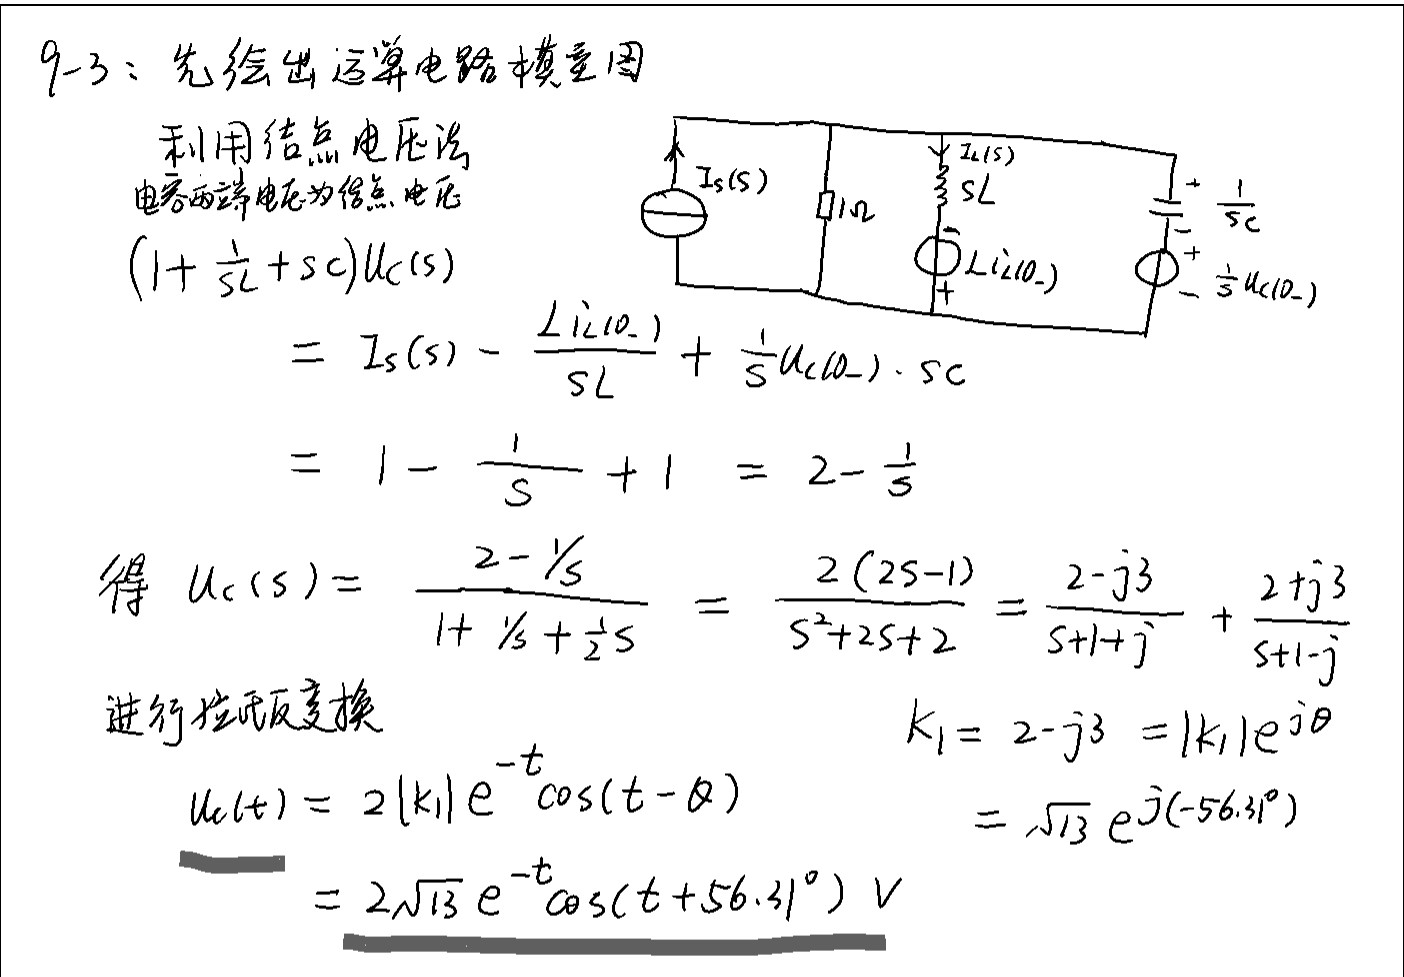 9-3：先绘出运算电路模型图
利用结点电压法
电容两端电压为结点电压
Is(s)
1Ω
IL(s)
sL
-
LiL(0-)
+
+ 1/sC
-
+
- 1/s uc(0-)
(1 + 1/sL + sC)Uc(s)
= Is(s) - LiL(0-)/sL + 1/s uc(0-) · sC
= 1 - 1/s + 1 = 2 - 1/s
得 Uc(s) = (2 - 1/s)/(1 + 1/s + 1/2 s) = 2(2s-1)/(s²+2s+2) = (2-j3)/(s+1+j) + (2+j3)/(s+1-j)
进行拉氏反变换
K1 = 2-j3 = |K1|e^jθ
uc(t) = 2|K1|e^-t cos(t-θ)
= √13 e^j(-56.31°)
= 2√13 e^-t cos(t+56.31°) V